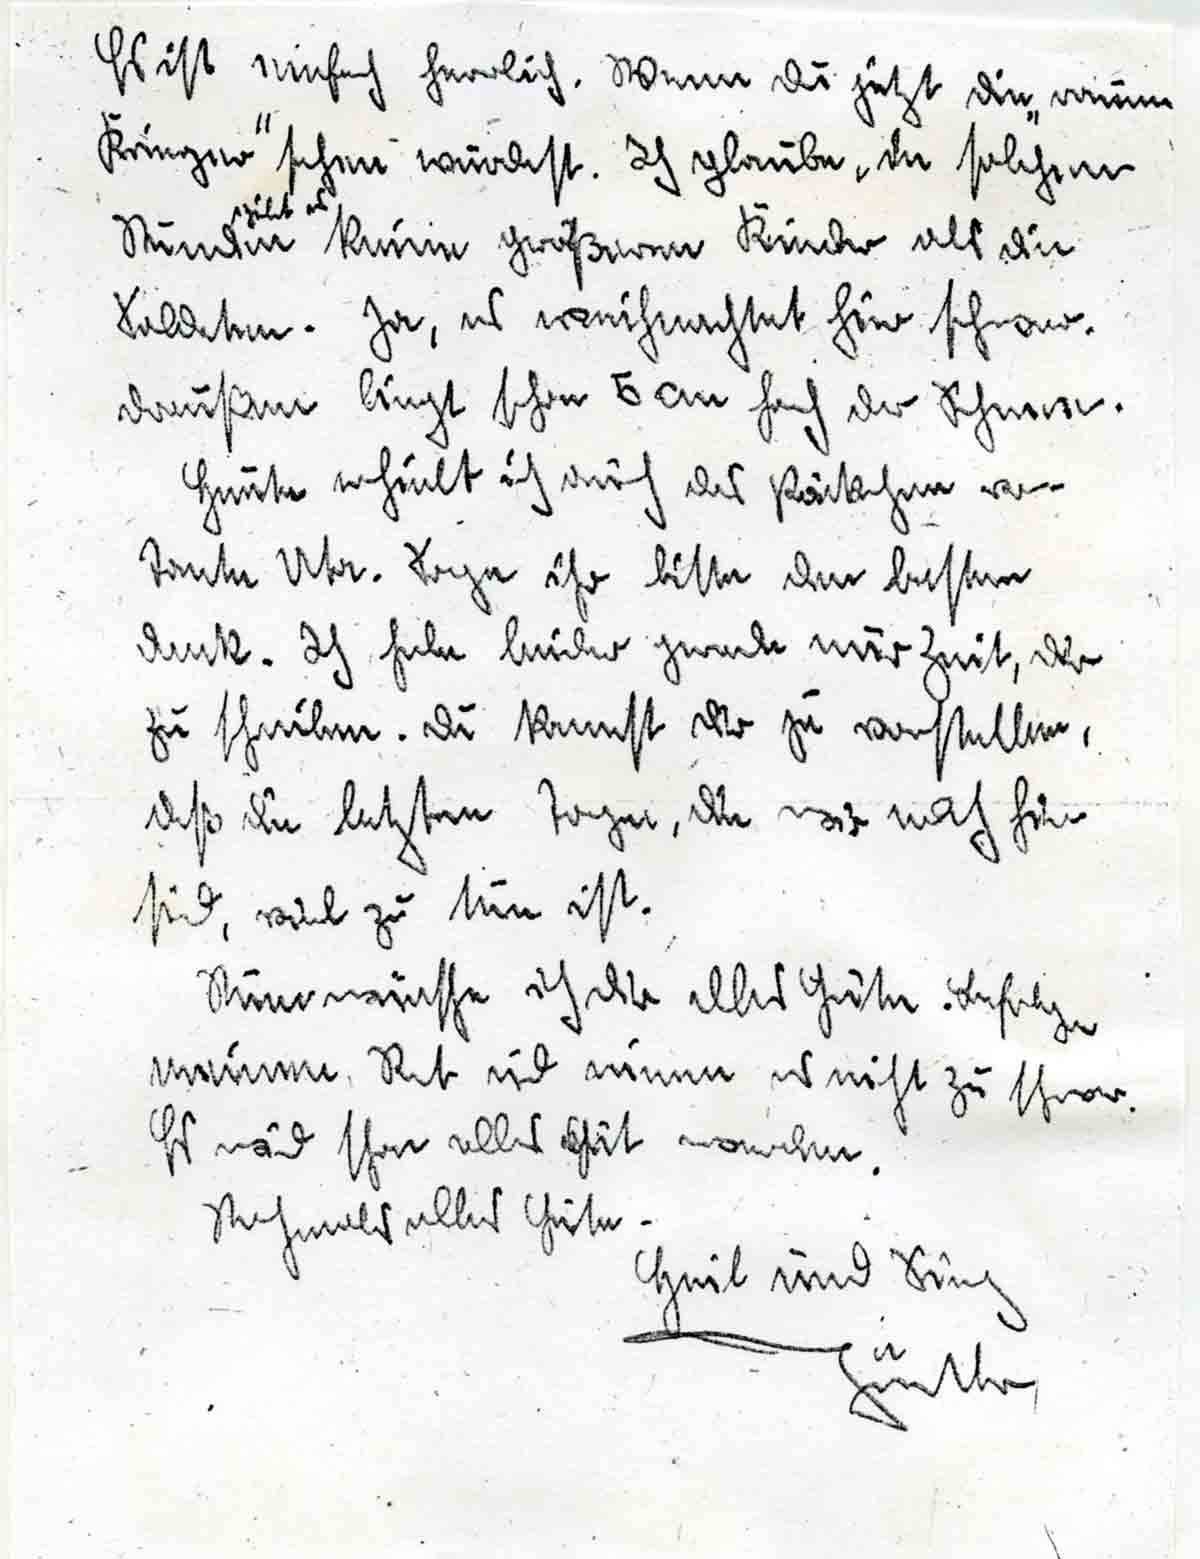 Es ist einfach herrlich. Wenn du jetzt die „rauen
Krieger" sehen würdest. Ich glaube, in solchen
Stunden gibt es keine größeren Kinder als die
Soldaten. Ja, es weihnachtet hier sehr.
draußen liegt schon 5 cm hoch der Schnee.
Heute erhielt ich auch das Päckchen von
Tante Uta. Sage ihr bitte den besten
dank. Ich habe leider gerade nur Zeit, dir
zu schreiben. du kannst dir ja vorstellen,
daß die letzten Tage, die wir noch hier
sind, viel zu tun ist.
Nun wünsche ich dir alles Gute. Befolge
meinen Rat und nimm es nicht zu schwer.
Es wird schon alles gut werden.
Nochmals alles Gute.
Heil und Sieg
Günther